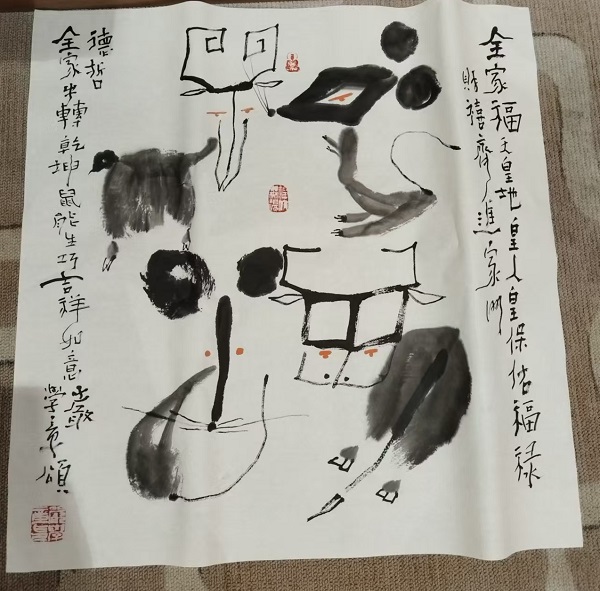 全家福天皇地皇人皇保佑福禄
財禧齊進家门
德哲
全家牛轉乾坤鼠能生巧吉祥如意
頌